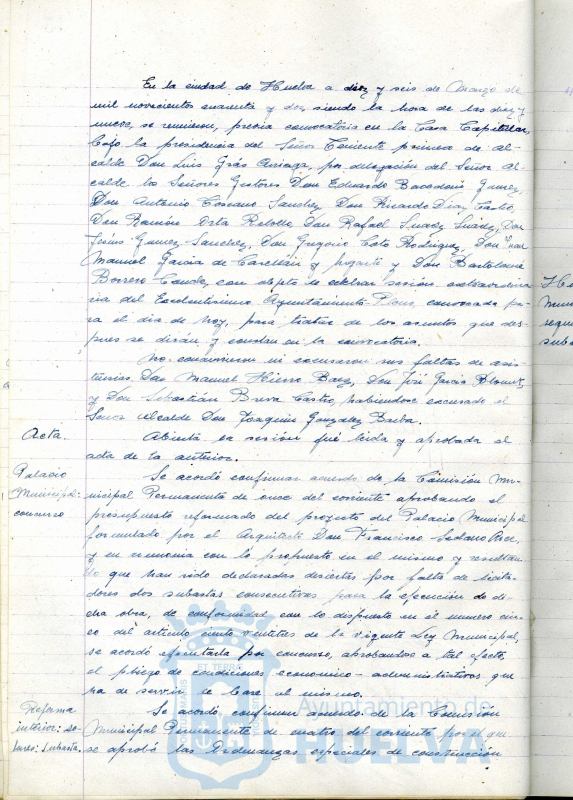 En la ciudad de Huelva a diez y seis de Marzo de
mil novecientos cuarenta y dos, siendo la hora de las diez y
nueve, se reunieron, previa convocatoria en la Casa Capitular,
bajo la presidencia del Señor Teniente primero de Al-
calde Don Luis Grás Arriaga, por delegación del Señor Al-
calde los Señores Gestores Don Eduardo Bacedoniz Gomez,
Don Antonio Toscano Sanchez, Don Ricardo Diaz Castro,
Don Ramón Orta Rebollo, Don Rafael Suarez Suarez, Don
Jesús Gomez Sanchez, Don Gregorio Coto Rodriguez, Don Juan
Manuel Garcia de Castellan y Don Bartolomé
Borrero Conde, con objeto de celebrar sesión extraordina
ria del Excelentísimo Ayuntamiento Pleno, convocada pa-
ra el día de hoy, para tratar de los asuntos que des-
pues se dirán y constan en la convocatoria.
No concurrieron ni excusaron sus faltas de asis-
tencias, Don Manuel Hierro Baez, Don José Garcia
y Don Sebastián Castro, habiendose excusado el
Señor Alcalde Don Joaquin Gonzalez Barba.
Acta.
Abierta la sesión fué leida y aprobada el
acta de la anterior.
Palacio
Municipal:
concurso
Se acordó confirmar acuerdo de la Comisión Mu-
nicipal Permanente de once del corriente aprobando el
presupuesto reformado del proyecto del Palacio Municipal
formulado por el Arquitecto Don Francisco Sedano Arce,
y en armonia con lo propuesto en el mismo y resultan-
do que han sido declaradas desiertas por falta de licita-
dores dos subastas consecutivas para la ejecución de di-
cha obra, de conformidad con lo dispuesto en el número cin-
co del artículo ciento veintitres de la vigente Ley Municipal,
se acordó ejecutarla por concurso, aprobandose a tal efecto,
el pliego de condiciones economico-administrativas que
ha de servir de base al mismo.
Reforma
interior: so-
lares: Subasta.
Se acordó confirmar acuerdo de la Comisión
Municipal Permanente de cuatro del corriente por el que
se aprobó las Ordenanzas especiales de construcción
Ayuntamiento de
HUELVA